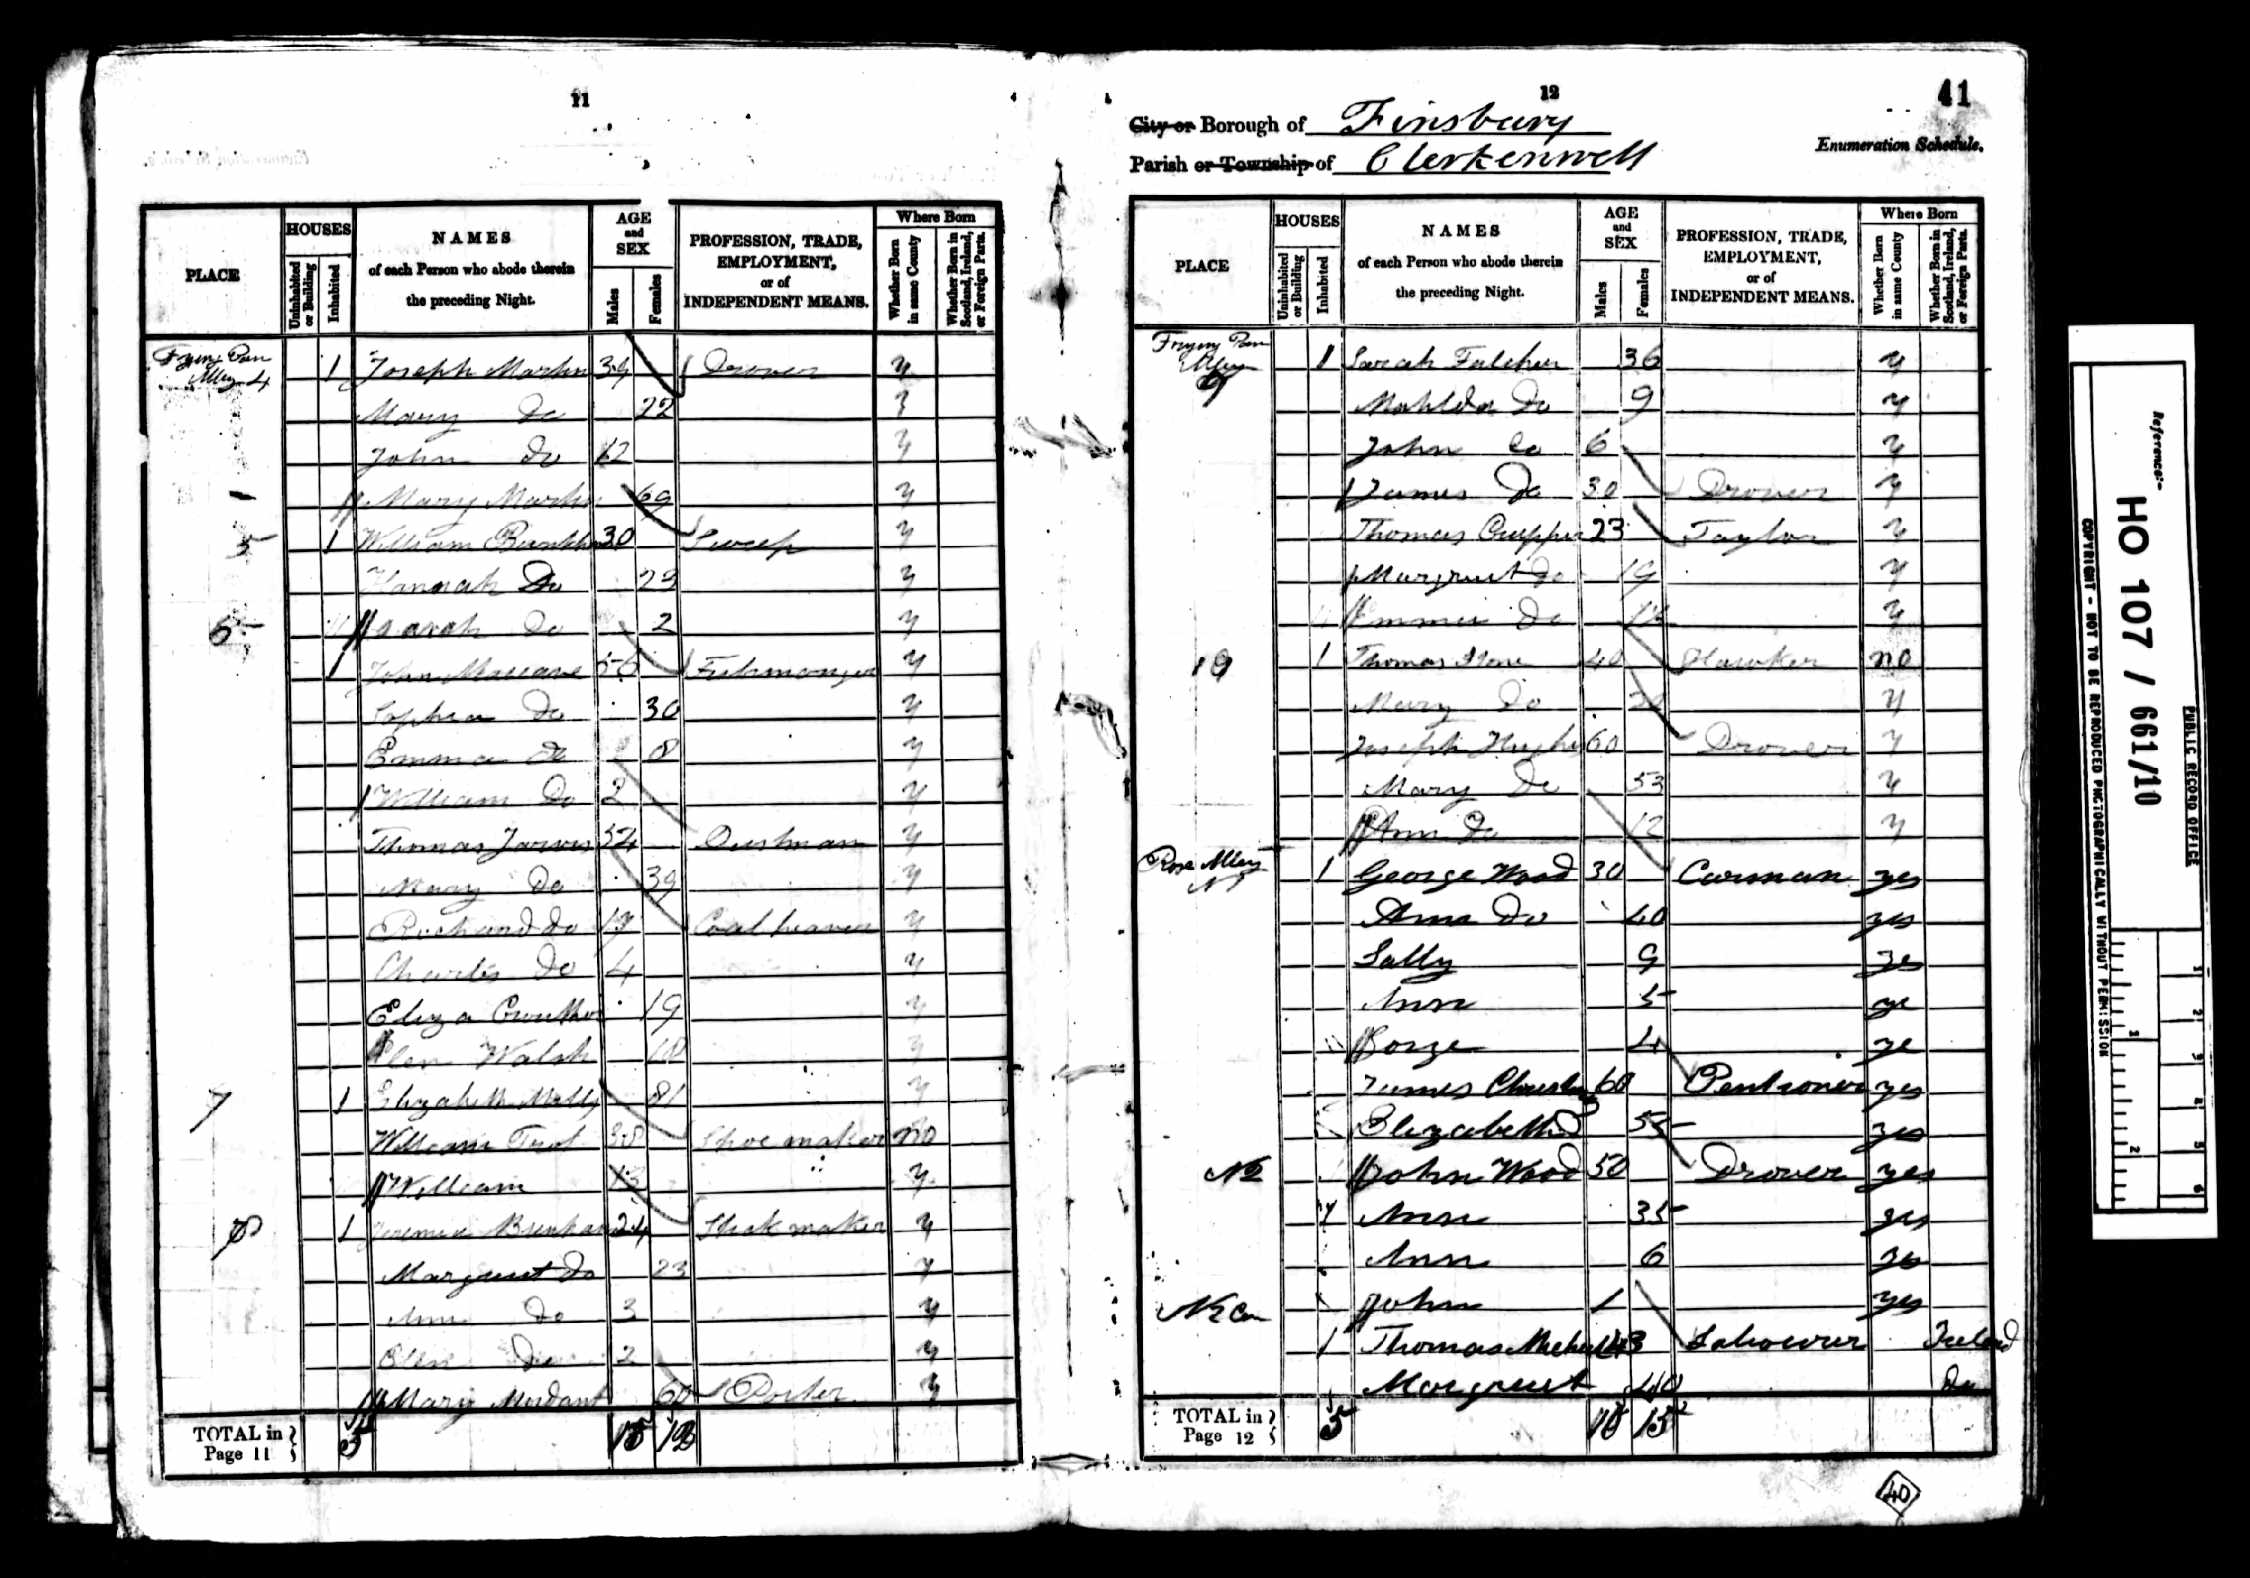 11
PLACE
HOUSES
Uninhabited or Building
Inhabited
NAMES
of each Person who abode therein
the preceding Night.
AGE
and
SEX
Males
Females
PROFESSION, TRADE,
EMPLOYMENT,
or of
INDEPENDENT MEANS.
Where Born
Whether Born in same County
Whether Born in Scotland, Ireland, or Foreign Parts.
Frying Pan Alley 4 1 Joseph Martin 39 Drover y
Mary Do 22 y
John Do 12 y
Mary Martin 69 y
5 1 William 30 Sweep y
Hannah Do 23 y
6 Sarah Do 2 y
1 John 56 Fishmonger y
Sophia Do 30 y
Emma Do 8 y
William Do 2 y
Thomas Jarvis 54 Dustman y
Mary Do 39 y
Richard Do 19 Coal heaver y
Charles Do 4 y
Eliza 19 y
Elen Walsh 18 y
7 1 Elizabeth Mills 81 y
William Trot 38 Shoe maker no
William 13 y
8 1 24 maker y
Margreet Do 23 y
Ann Do 3 y
Elen Do 2 y
Mary Mordant 60 Porter y
TOTAL in Page 11 5
12
41
City or Borough of Finsbury
Parish or Township of Clerkenwell
Enumeration Schedule.
PLACE
HOUSES
Uninhabited or Building
Inhabited
NAMES
of each Person who abode therein
the preceding Night.
AGE
and
SEX
Males
Females
PROFESSION, TRADE,
EMPLOYMENT,
or of
INDEPENDENT MEANS.
Where Born
Whether Born in same County
Whether Born in Scotland, Ireland, or Foreign Parts.
Frying Pan Alley 9 1 Sarah Fulcher 36 y
Matilda Do 9 y
John Do 6 y
James Do 30 Drover y
Thomas 23 Taylor y
Margreet Do 19 y
Emmer Do y
19 1 Thomas Stone 40 Hawker no
Mary Do y
Joseph Hughs 60 Drover y
Mary Do 53 y
Ann Do 12 y
Rose Alley N1 1 George Wood 30 Carman yes
Ann Do 40 yes
Sally 9 yes
Ann 5 ye
Gorge 4 ye
James 60 Pentioner yes
Elizabeth 55 yes
N2 John Wood 50 Drover yes
Ann 35 yes
Ann 6 yes
John 1 yes
N2 1 Thomas 43 Labourer Ireland
Margreet 40 Do
TOTAL in Page 12 5 10 15
40
Reference:-
HO 107 / 661/10
PUBLIC RECORD OFFICE
COPYRIGHT - NOT TO BE REPRODUCED PHOTOGRAPHICALLY WITHOUT PERMISSION
1
2
1
2
3
4
5
6